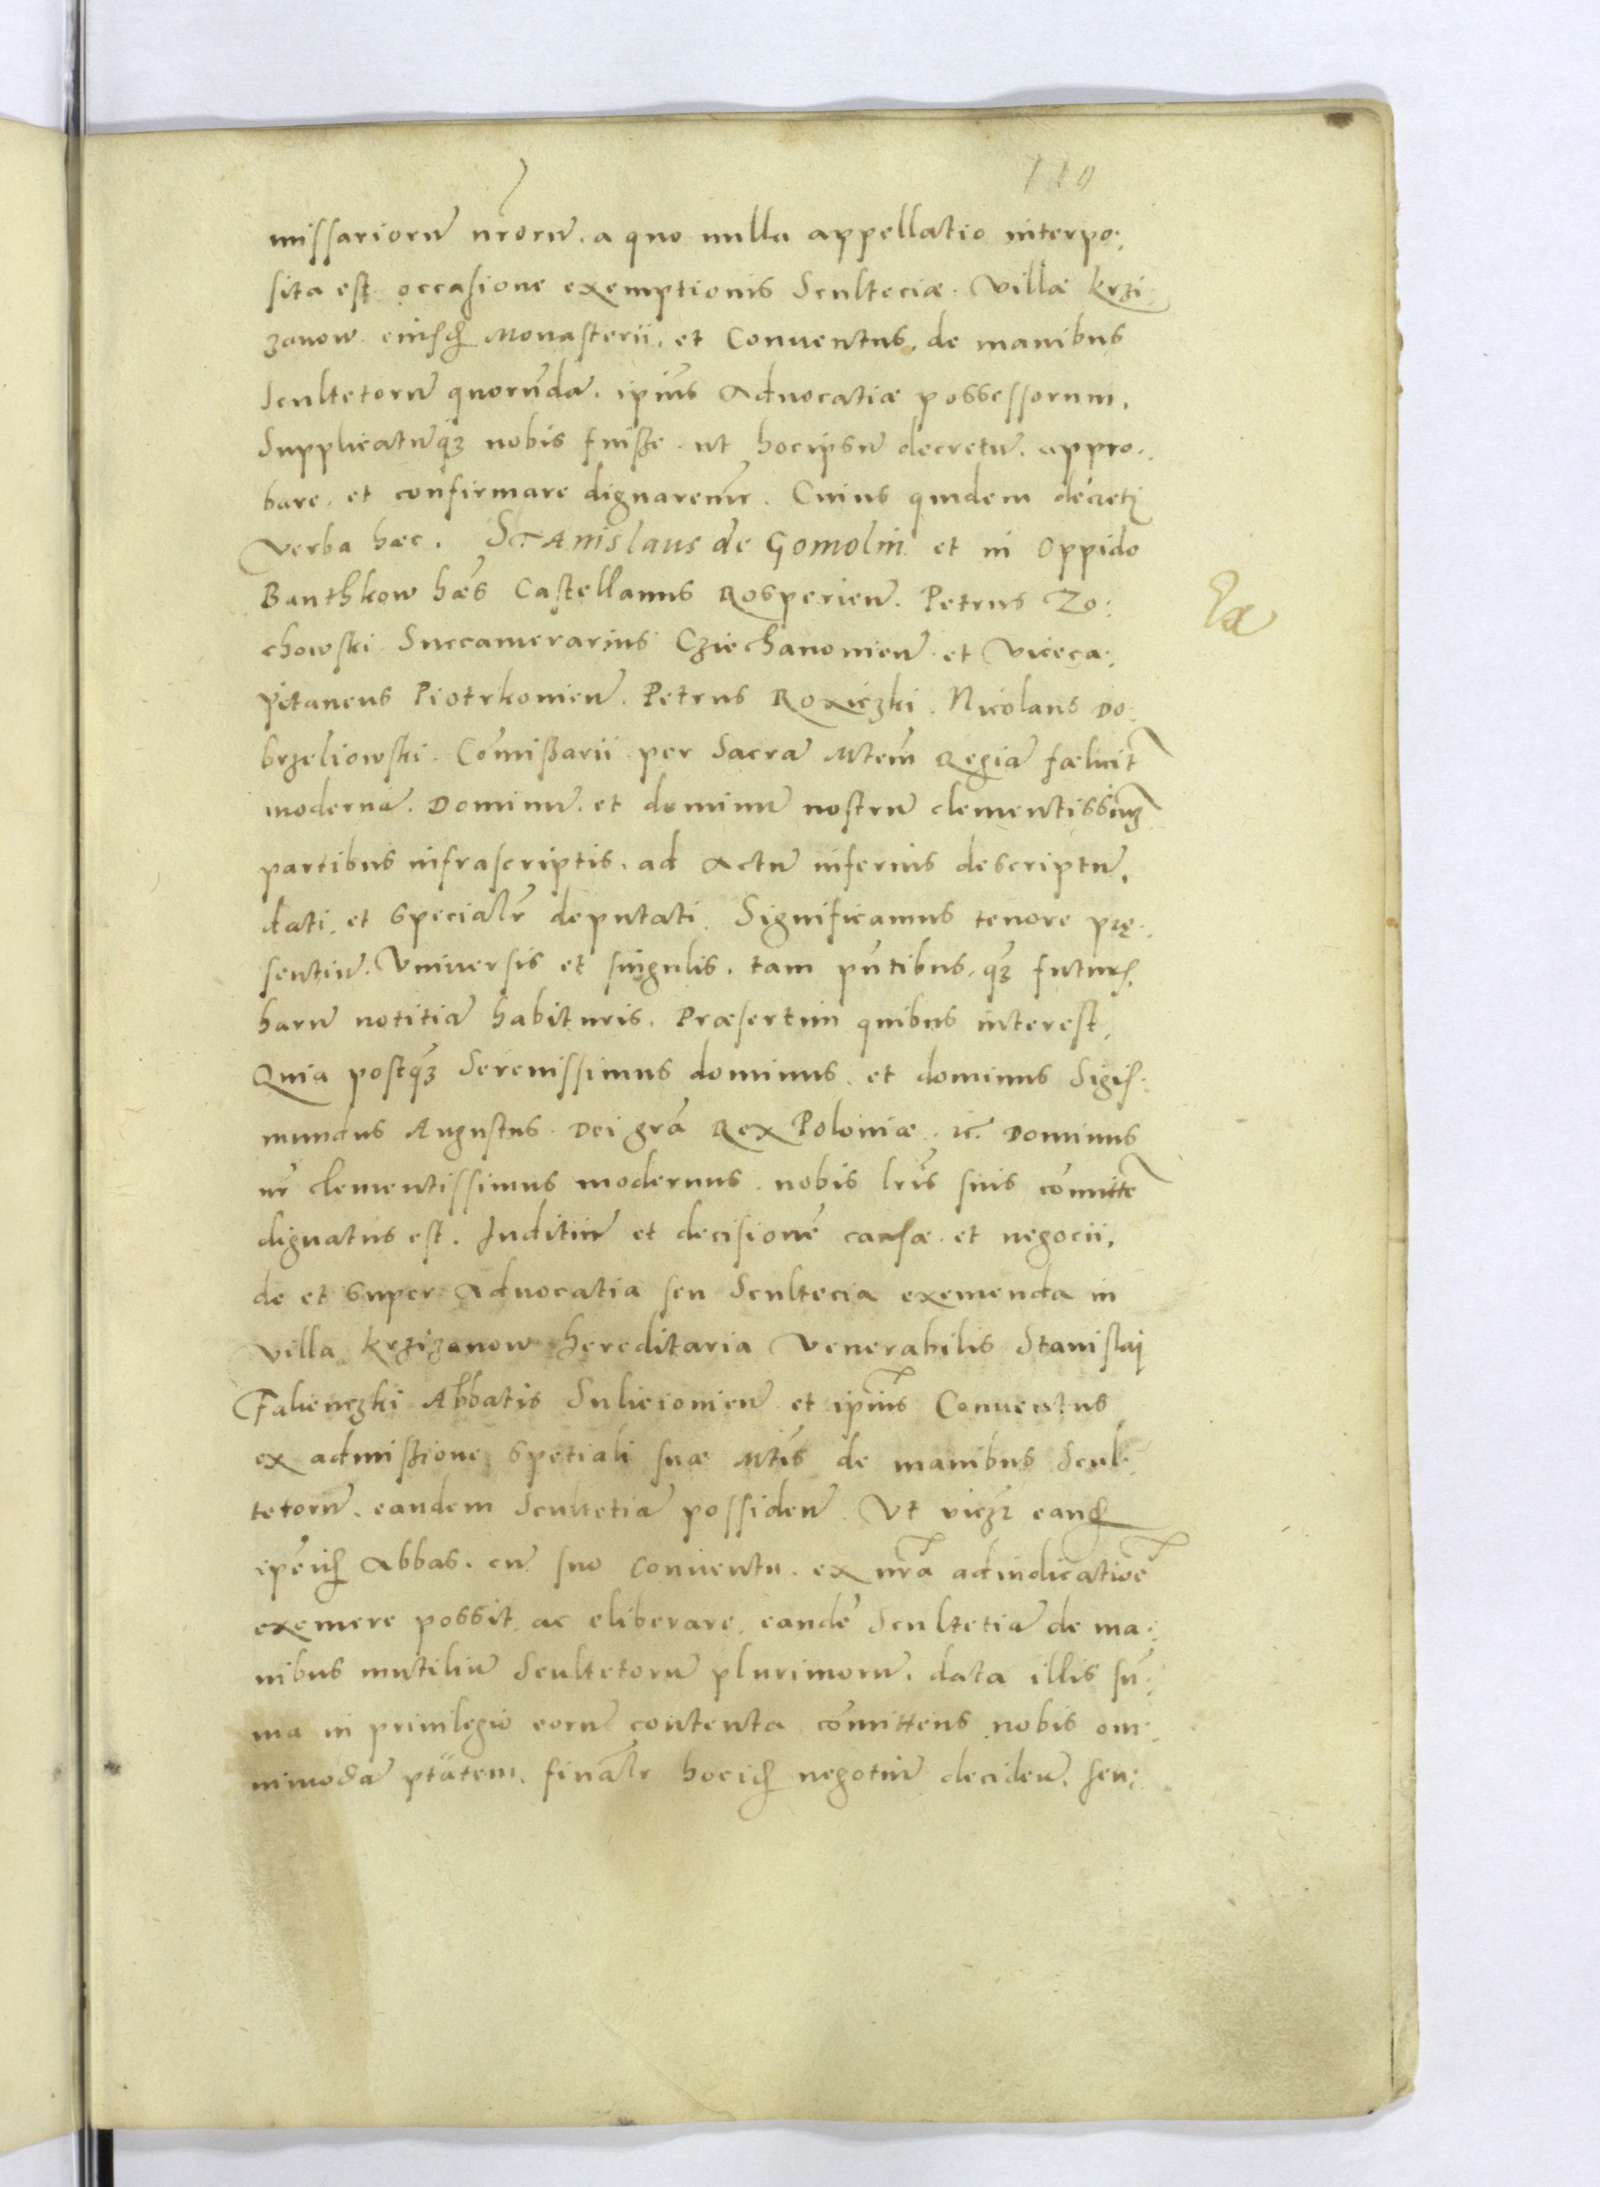 110
missarioru͂ nr͂oru͂. a quo nulla appellatio interpo:
sita est occasione exemptionis Sculteciæ. Villæ Krzi
zanow. eiusd. Monasterii, et Conuentus, de manibus
Scultetoru͂ quorũda͂. ip̃ius Aduocatiæ possessorum.
Supplicatu͂q3 nobis fuisse. ut hocipsu͂ decretu͂. appro:
bare. et confirmare dignaremur. Cuius quidem decreti
Verba hæc. Stanislaus de Gomolin et in Oppido
Banthkow hæ͂s Castellanus Rosperien͂. Petrus Zo:
chowski Succamerarius Cziechanouien͂ et Viceca:
pitaneus Piotrkouien͂. Petrus Roxiczki. Nicolaus Do:
brzeliowski. Co͂missarii per Sacra͂ Mtem͂ Regia͂ fælicit͂
moderna͂. Dominu͂. et dominu͂ nostru͂ clementissim͂
partibus infrascriptis. ad Actu͂ inferius descriptu͂.
dati. et specialr͂ deputati. Significamus tenore præ:
sentiu͂. Vniuersis et singulis. tam pn͂tibus. q͂3 futuris,
haru͂ notitia͂ habituris. Præsertim quibus interest.
Quia postq͂3 Serenissimus dominus. et dominus Sigis:
mundus Augustus. Dei gra͂ Rex Poloniæ. ic. Dominus
nr͂ clementissimus modernus. nobis lr͂is suis co͂mitte͂
dignatus est. Juditiu͂ et decisione͂ causæ. et negocii,
de et super Aduocatia seu Scultecia exemenda in
Villa Krzizanow hereditaria Venerabilis Stanislai
Falienczki Abbatis Sulieiouien͂ et ip̃ius Conuentus
ex admissione spetiali suæ Mtis͂ de manibus Scul:
tetoru͂. eandem Scultetia͂ possiden͂. Vt vicz eand
Abbas. cu͂ suo Conuentu. ex nr͂a adiudicatio͂e
exemere possit ac eliberare. eande͂ Scultetia͂ de ma:
nibus inutiliu͂ Scultetoru͂ plurimoru͂. data illis su͂:
ma in priuilegio eoru͂ contenta co͂mittens nobis om:
nimoda͂ pt͂atem. finalr͂ hocid negotiu͂ deciden͂. sen: